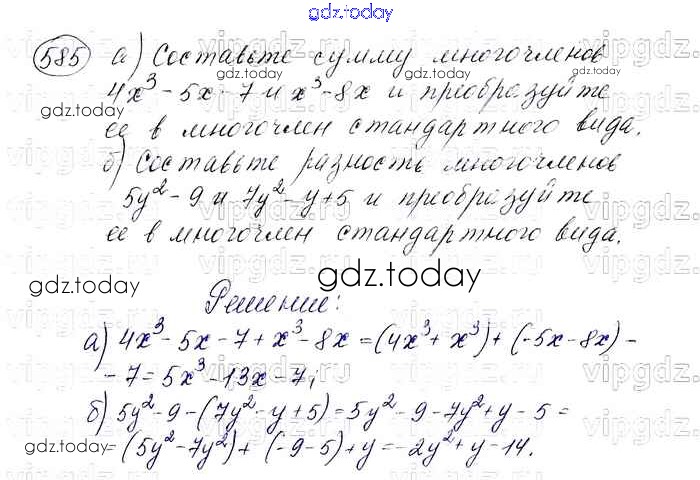 gdz.today
585 а) Составьте сумму многочленов
4x³ - 5x - 7 и x³ - 8x и преобразуйте
ее в многочлен стандартного вида.
б) Составьте разность многочленов
5y² - 9 и 7y² - y + 5 и преобразуйте
ее в многочлен стандартного вида.
gdz.today
Решение:
а) 4x³ - 5x - 7 + x³ - 8x = (4x³ + x³) + (-5x - 8x) -
- 7 = 5x³ - 13x - 7;
б) 5y² - 9 - (7y² - y + 5) = 5y² - 9 - 7y² + y - 5 =
= (5y² - 7y²) + (-9 - 5) + y = -2y² + y - 14.